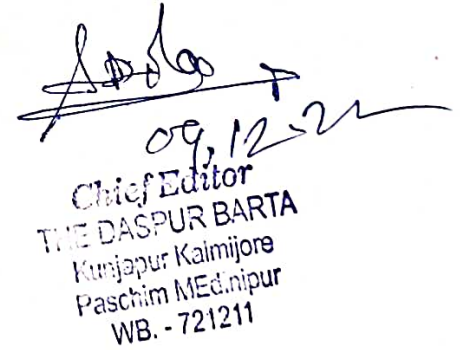 09.12.22
Chief Editor
THE DASPUR BARTA
Kunjapur Kalmijore
Paschim MEdinipur
WB. - 721211